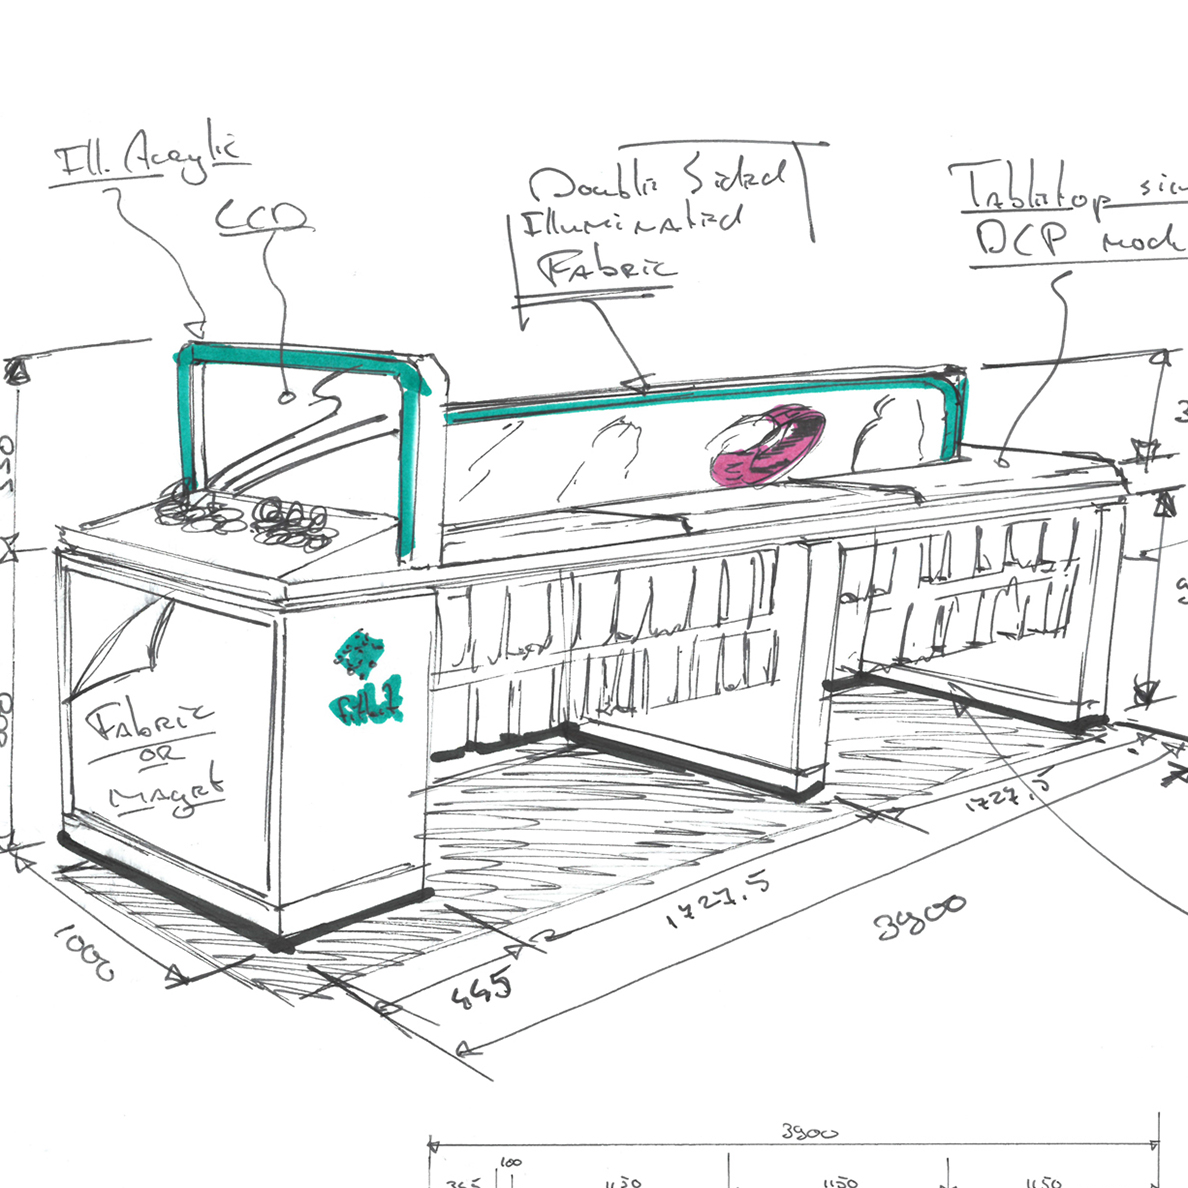 Ill. Acrylic
LCD
Double Sided
Illuminated
Fabric
Tabletop
DCP
550
Fabric
OR
Magnet
1000
445
1727.5
1727.5
3900
3900
100
1150
1150
1150